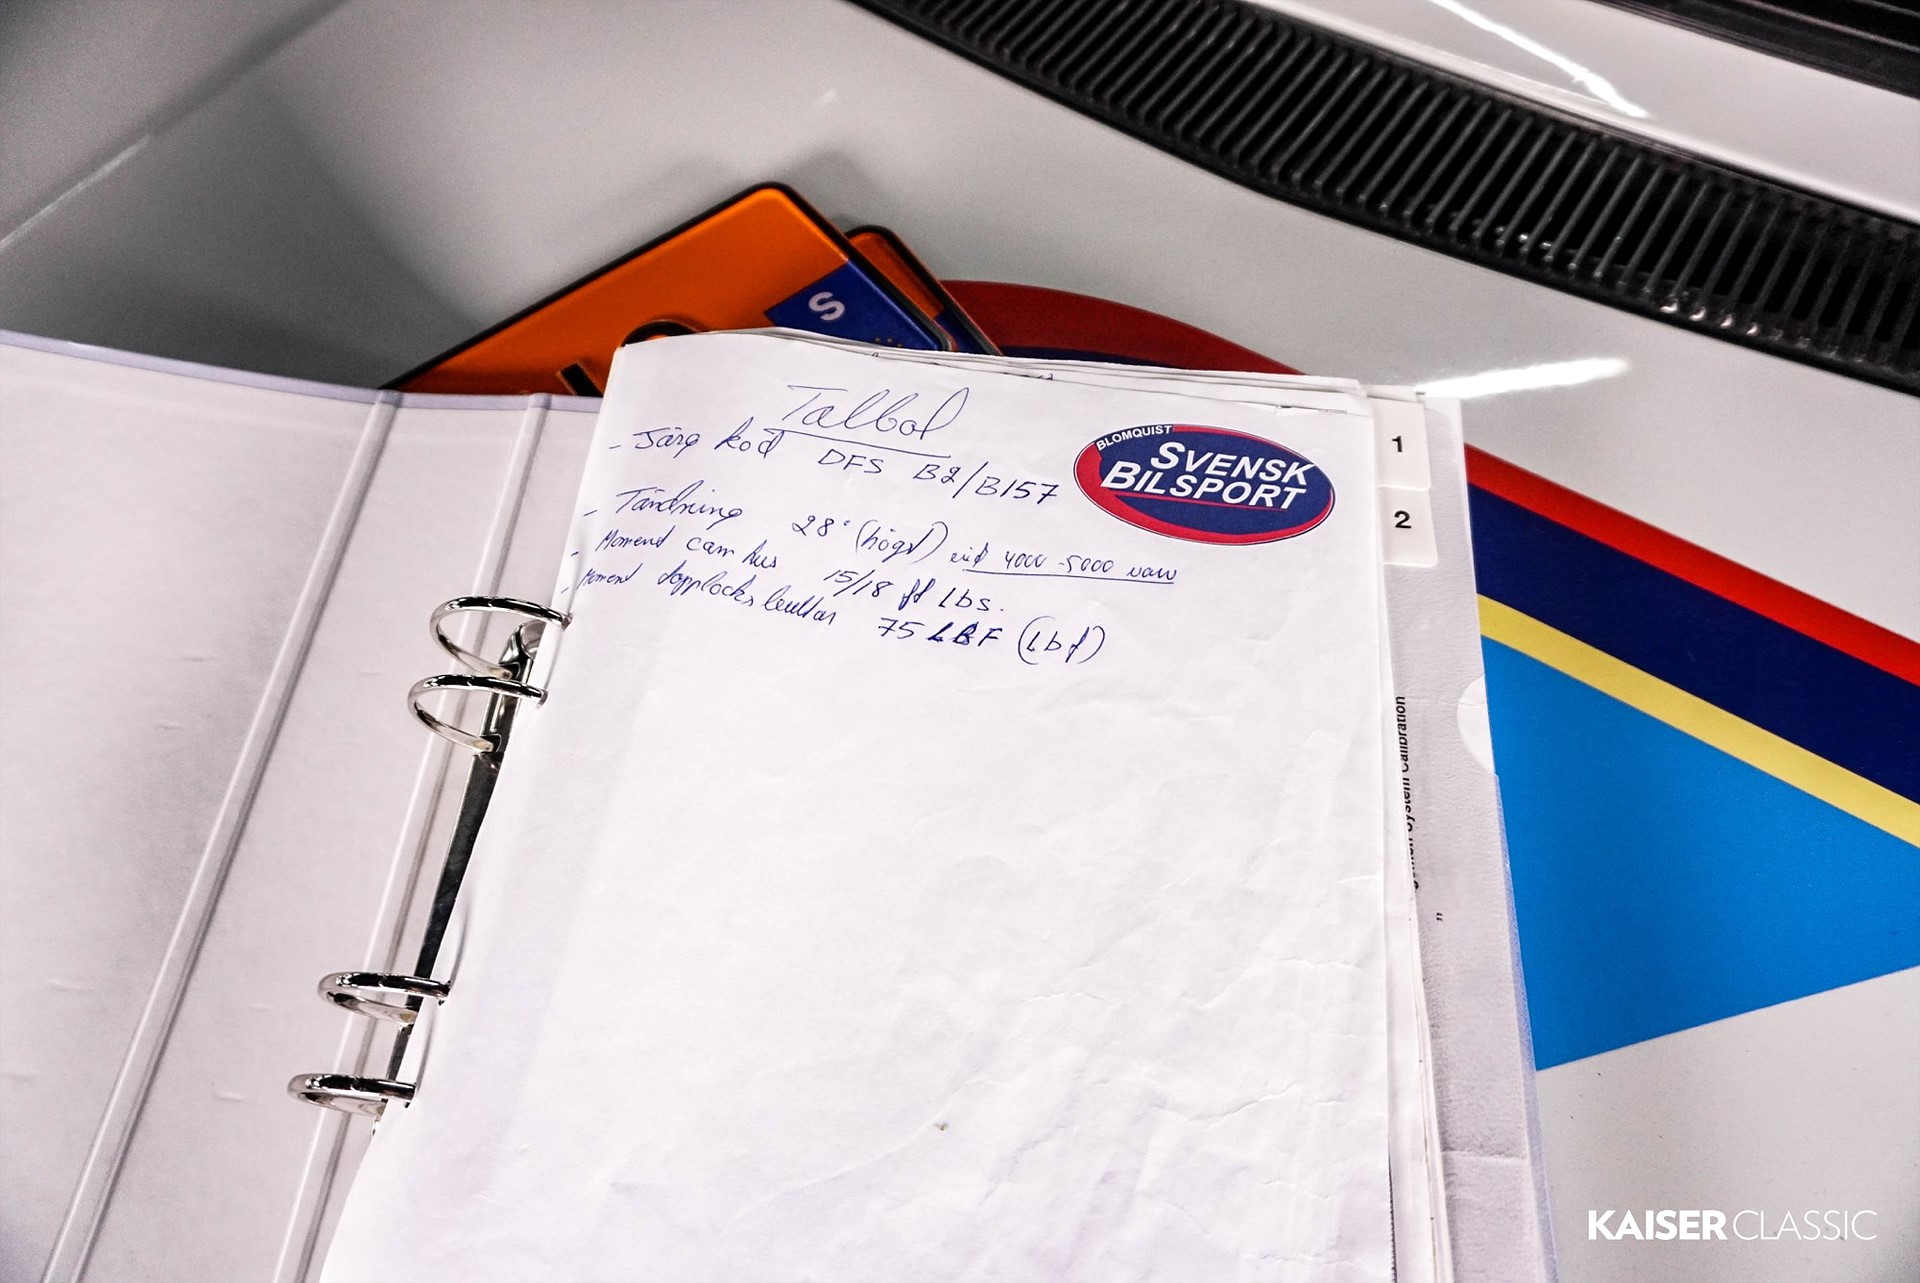 S
Talbot
- Färg kod DFS B2/B157
- Tändning 28° (högst) vid 4000-5000 varv
- Moment cam hus 15/18 ft Lbs.
- Moment topplocksbultar 75 LBF (Lbf)
BLOMQUIST
SVENSK
BILSPORT
1
2
System Calibration
KAISER CLASSIC